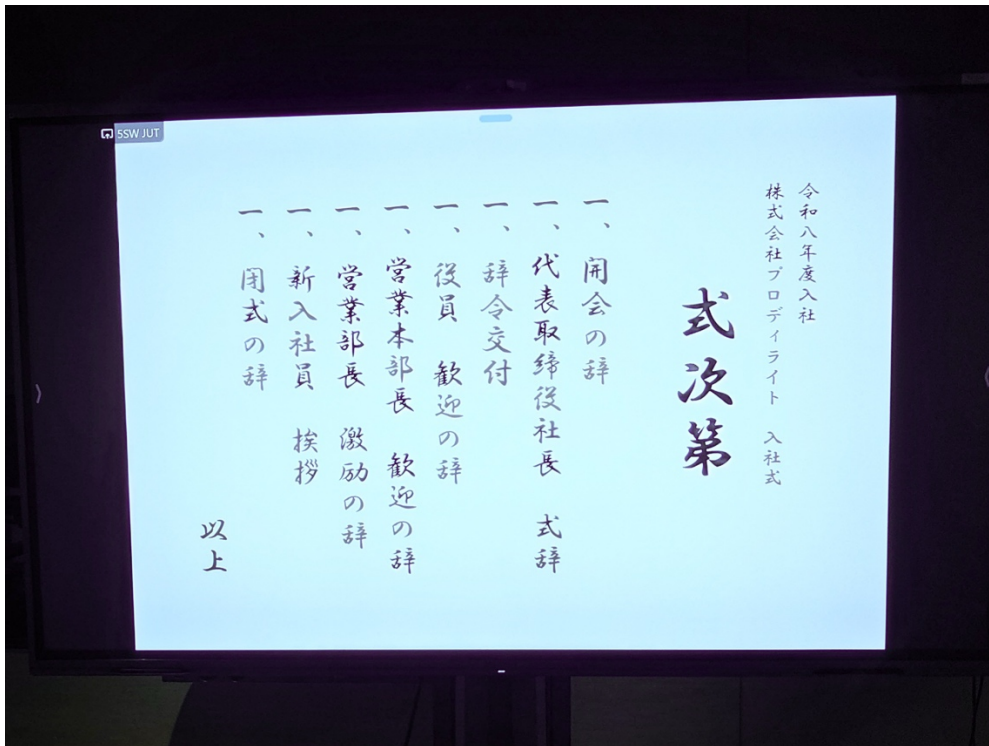 5SW JUT
令和八年度入社
株式会社プロディライト 入社式
式次第
一、開会の辞
一、代表取締役社長 式辞
一、辞令交付
一、役員 歓迎の辞
一、営業本部長 歓迎の辞
一、営業部長 激励の辞
一、新入社員 挨拶
一、閉式の辞
以上